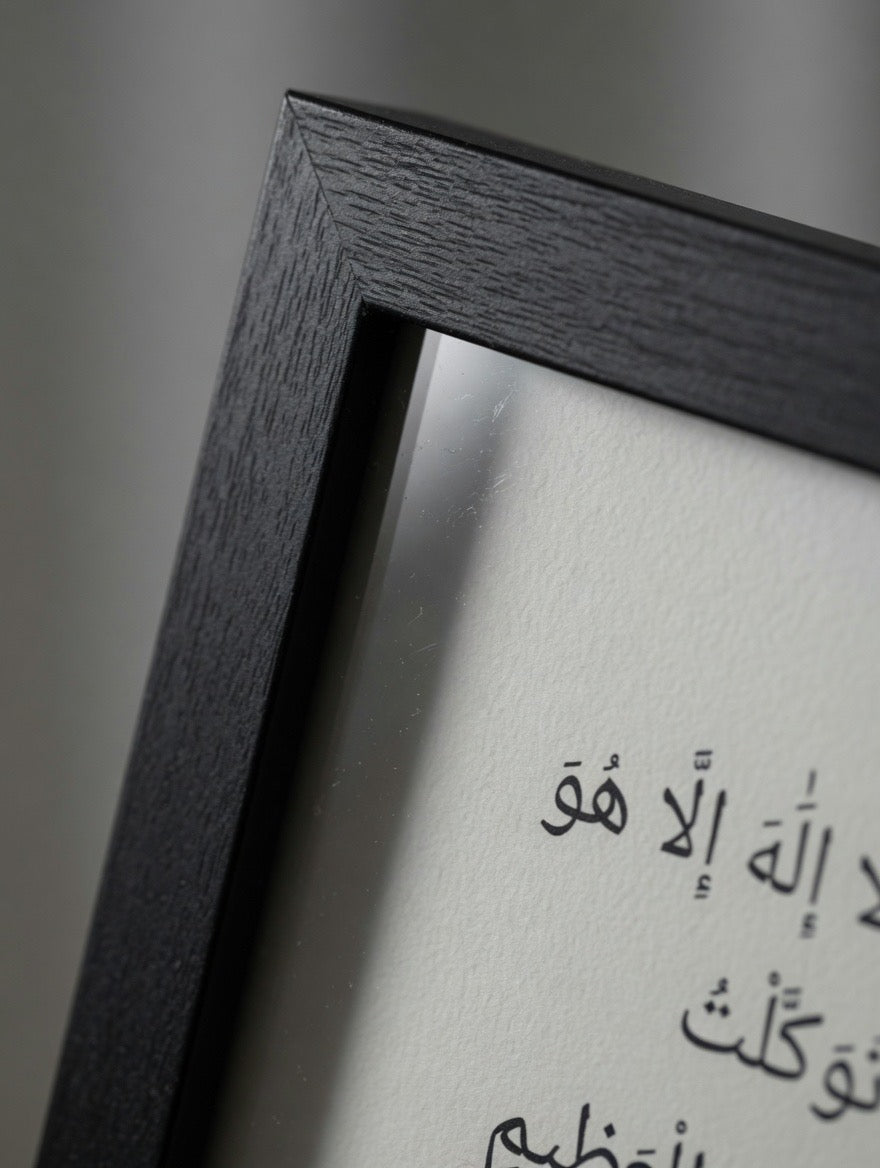 لَا إِلَٰهَ إِلَّا هُوَ
تَوَكَّلْتُ
الْعَظِيمِ